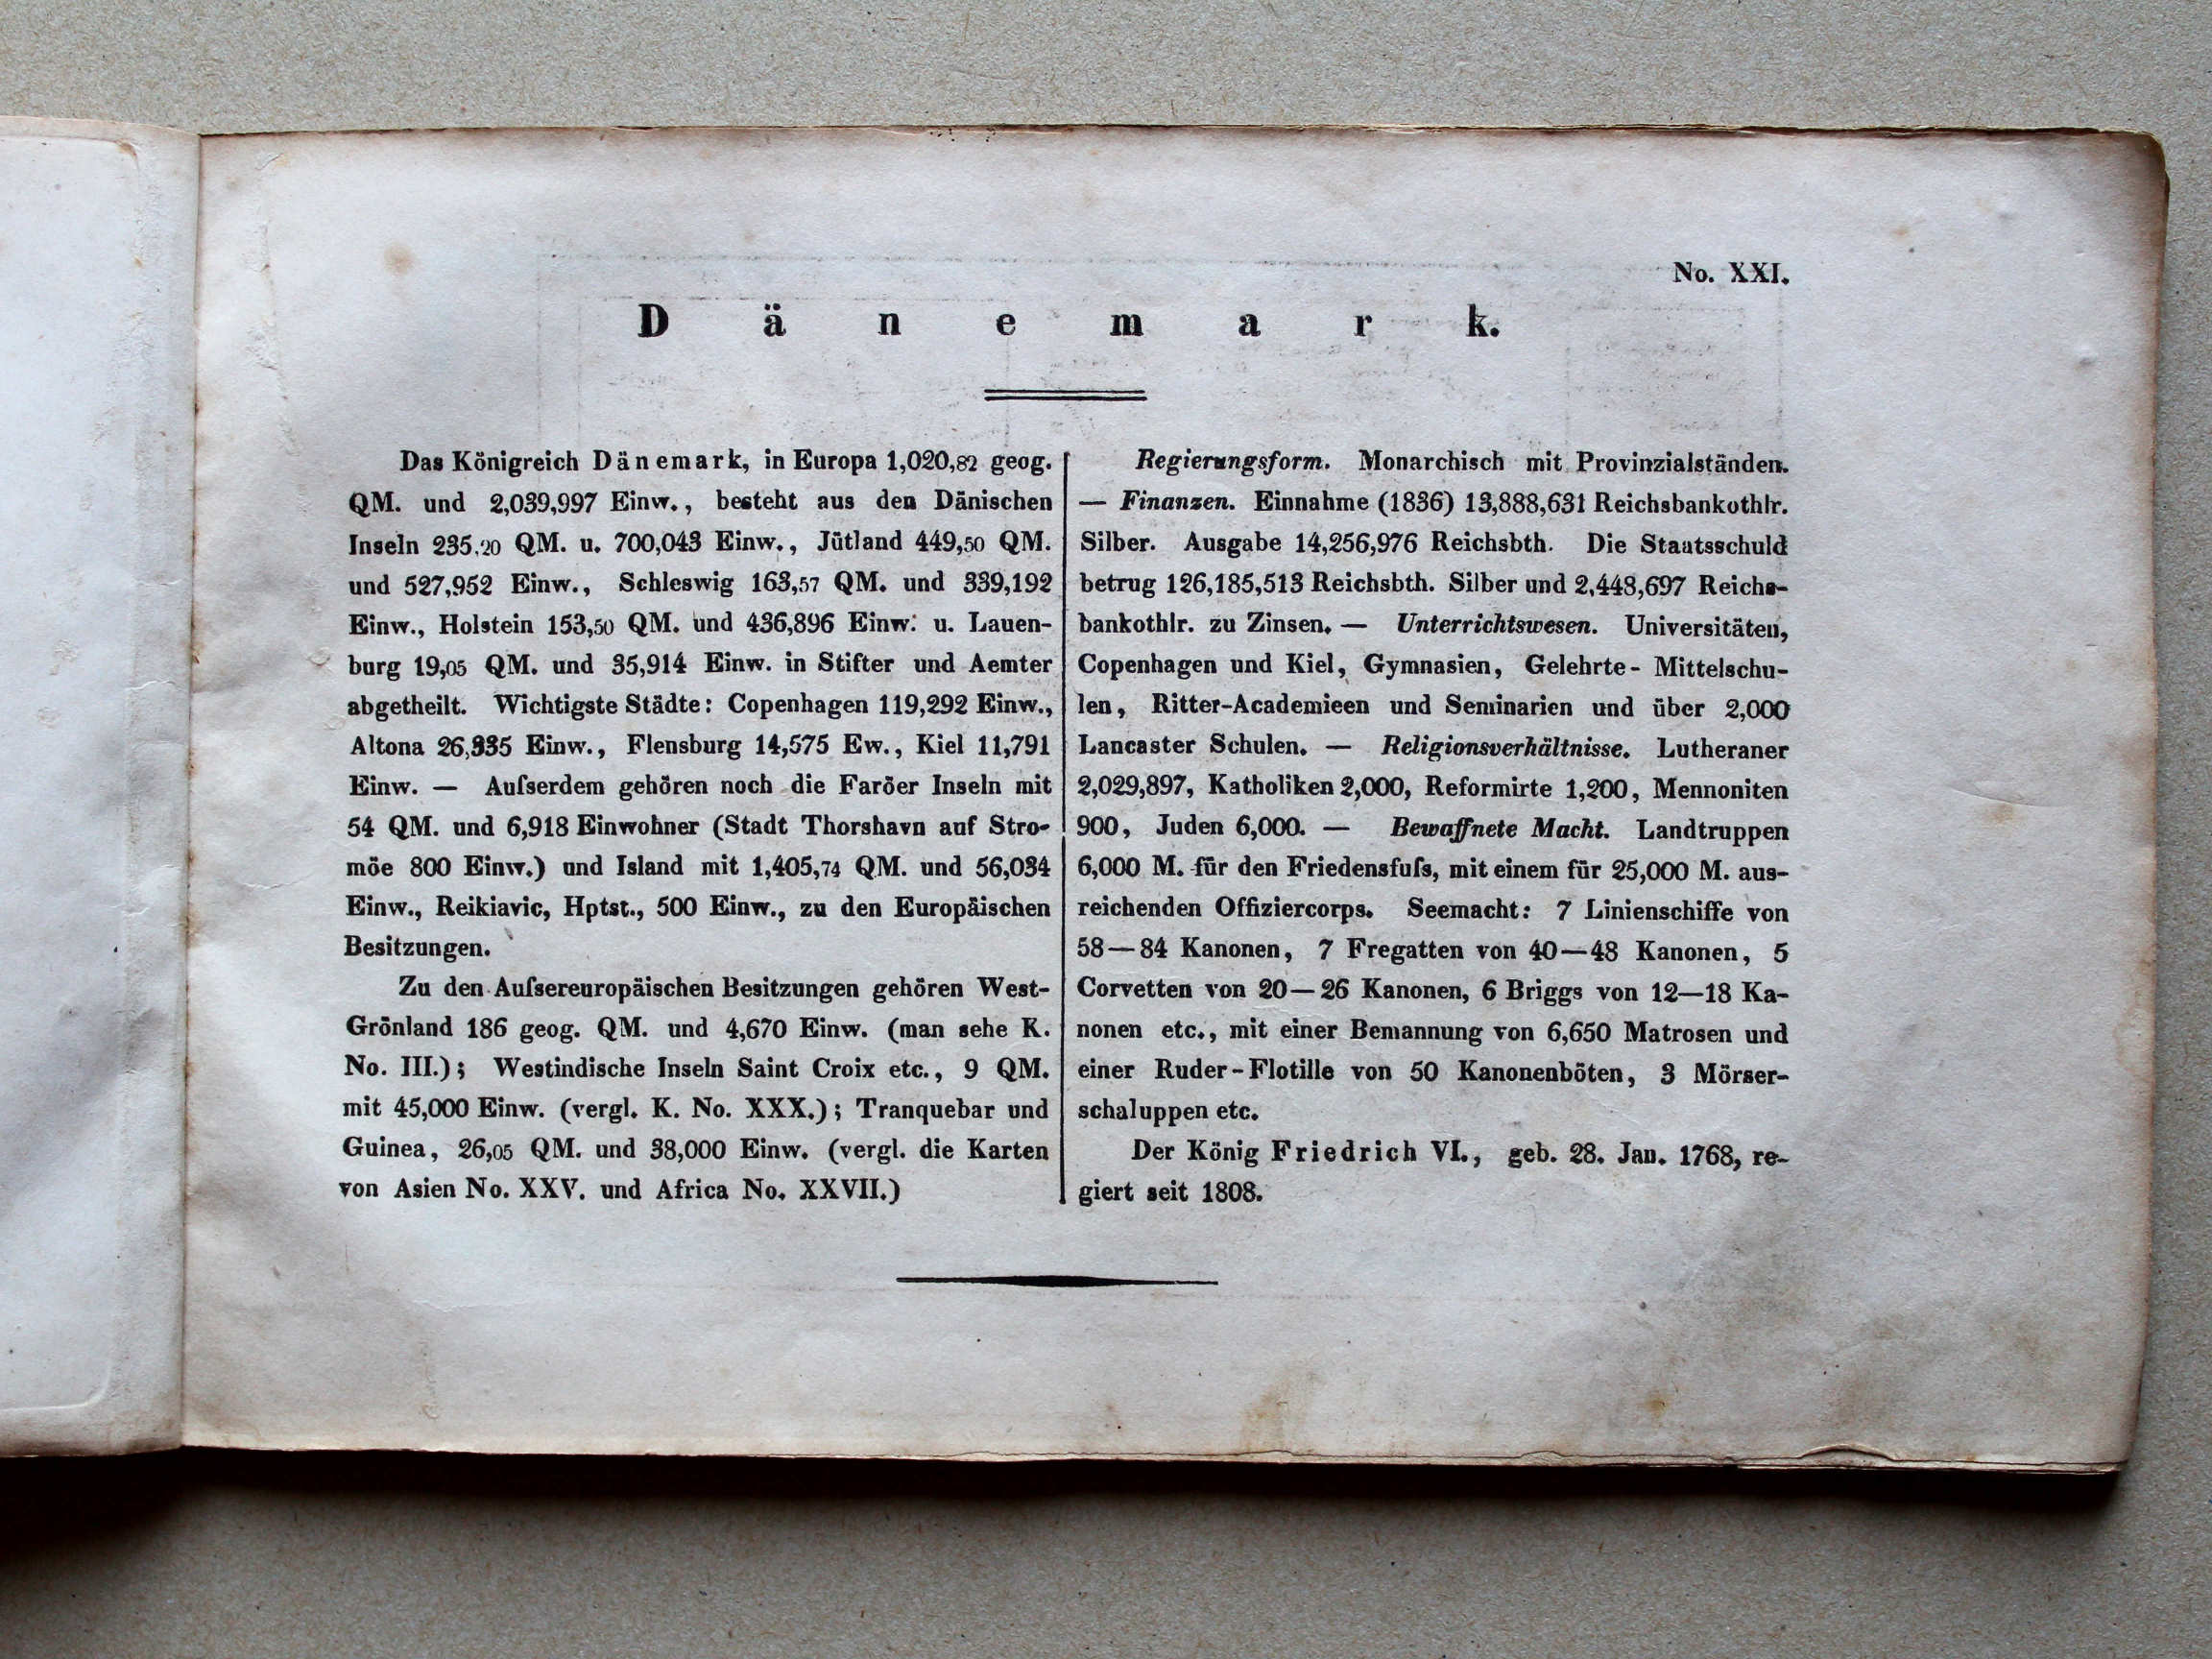 No. XXI.
Dänemark.
Das Königreich Dänemark, in Europa 1,020,82 geog.
QM. und 2,039,997 Einw., besteht aus den Dänischen
Inseln 235,20 QM. u. 700,043 Einw., Jütland 449,50 QM.
und 527,952 Einw., Schleswig 163,57 QM. und 339,192
Einw., Holstein 153,50 QM. und 436,896 Einw. u. Lauen-
burg 19,05 QM. und 35,914 Einw. in Stifter und Aemter
abgetheilt. Wichtigste Städte: Copenhagen 119,292 Einw.,
Altona 26,335 Einw., Flensburg 14,575 Ew., Kiel 11,791
Einw. — Auſserdem gehören noch die Faröer Inseln mit
54 QM. und 6,918 Einwohner (Stadt Thorshavn auf Stro-
möe 800 Einw.) und Island mit 1,405,74 QM. und 56,034
Einw., Reikiavic, Hptst., 500 Einw., zu den Europäischen
Besitzungen.
Zu den Auſsereuropäischen Besitzungen gehören West-
Grönland 186 geog. QM. und 4,670 Einw. (man sehe K.
No. III.); Westindische Inseln Saint Croix etc., 9 QM.
mit 45,000 Einw. (vergl. K. No. XXX.); Tranquebar und
Guinea, 26,05 QM. und 38,000 Einw. (vergl. die Karten
von Asien No. XXV. und Africa No. XXVII.)
Regierungsform. Monarchisch mit Provinzialständen.
— Finanzen. Einnahme (1836) 13,888,631 Reichsbankothlr.
Silber. Ausgabe 14,256,976 Reichsbth. Die Staatsschuld
betrug 126,185,513 Reichsbth. Silber und 2,448,697 Reichs-
bankothlr. zu Zinsen. — Unterrichtswesen. Universitäten,
Copenhagen und Kiel, Gymnasien, Gelehrte- Mittelschu-
len, Ritter-Academieen und Seminarien und über 2,000
Lancaster Schulen. — Religionsverhältnisse. Lutheraner
2,029,897, Katholiken 2,000, Reformirte 1,200, Mennoniten
900, Juden 6,000. — Bewaffnete Macht. Landtruppen
6,000 M. für den Friedensfuſs, mit einem für 25,000 M. aus-
reichenden Offiziercorps. Seemacht: 7 Linienschiffe von
58—84 Kanonen, 7 Fregatten von 40—48 Kanonen, 5
Corvetten von 20—26 Kanonen, 6 Briggs von 12—18 Ka-
nonen etc., mit einer Bemannung von 6,650 Matrosen und
einer Ruder-Flotille von 50 Kanonenböten, 3 Mörser-
schaluppen etc.
Der König Friedrich VI., geb. 28. Jan. 1768, re-
giert seit 1808.